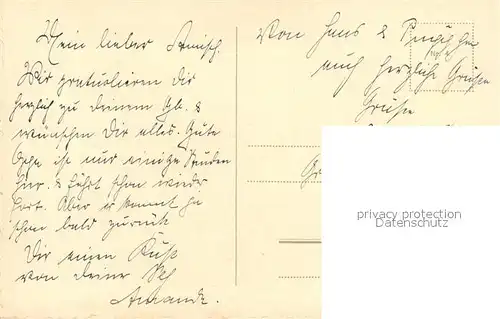 Mein lieber
Wir gratulieren Dir
herzlich zu Deinem Gb. &
wünschen Dir alles Gute
ist nur einige Stunden
hier & fährt schon wieder
fort. Aber er kommt ja
schon bald zurück
Dir einen Kuss
von Deiner
Amanda.
Von Hans &
auch herzliche Grüsse
Grüsse
privacy protection
Datenschutz